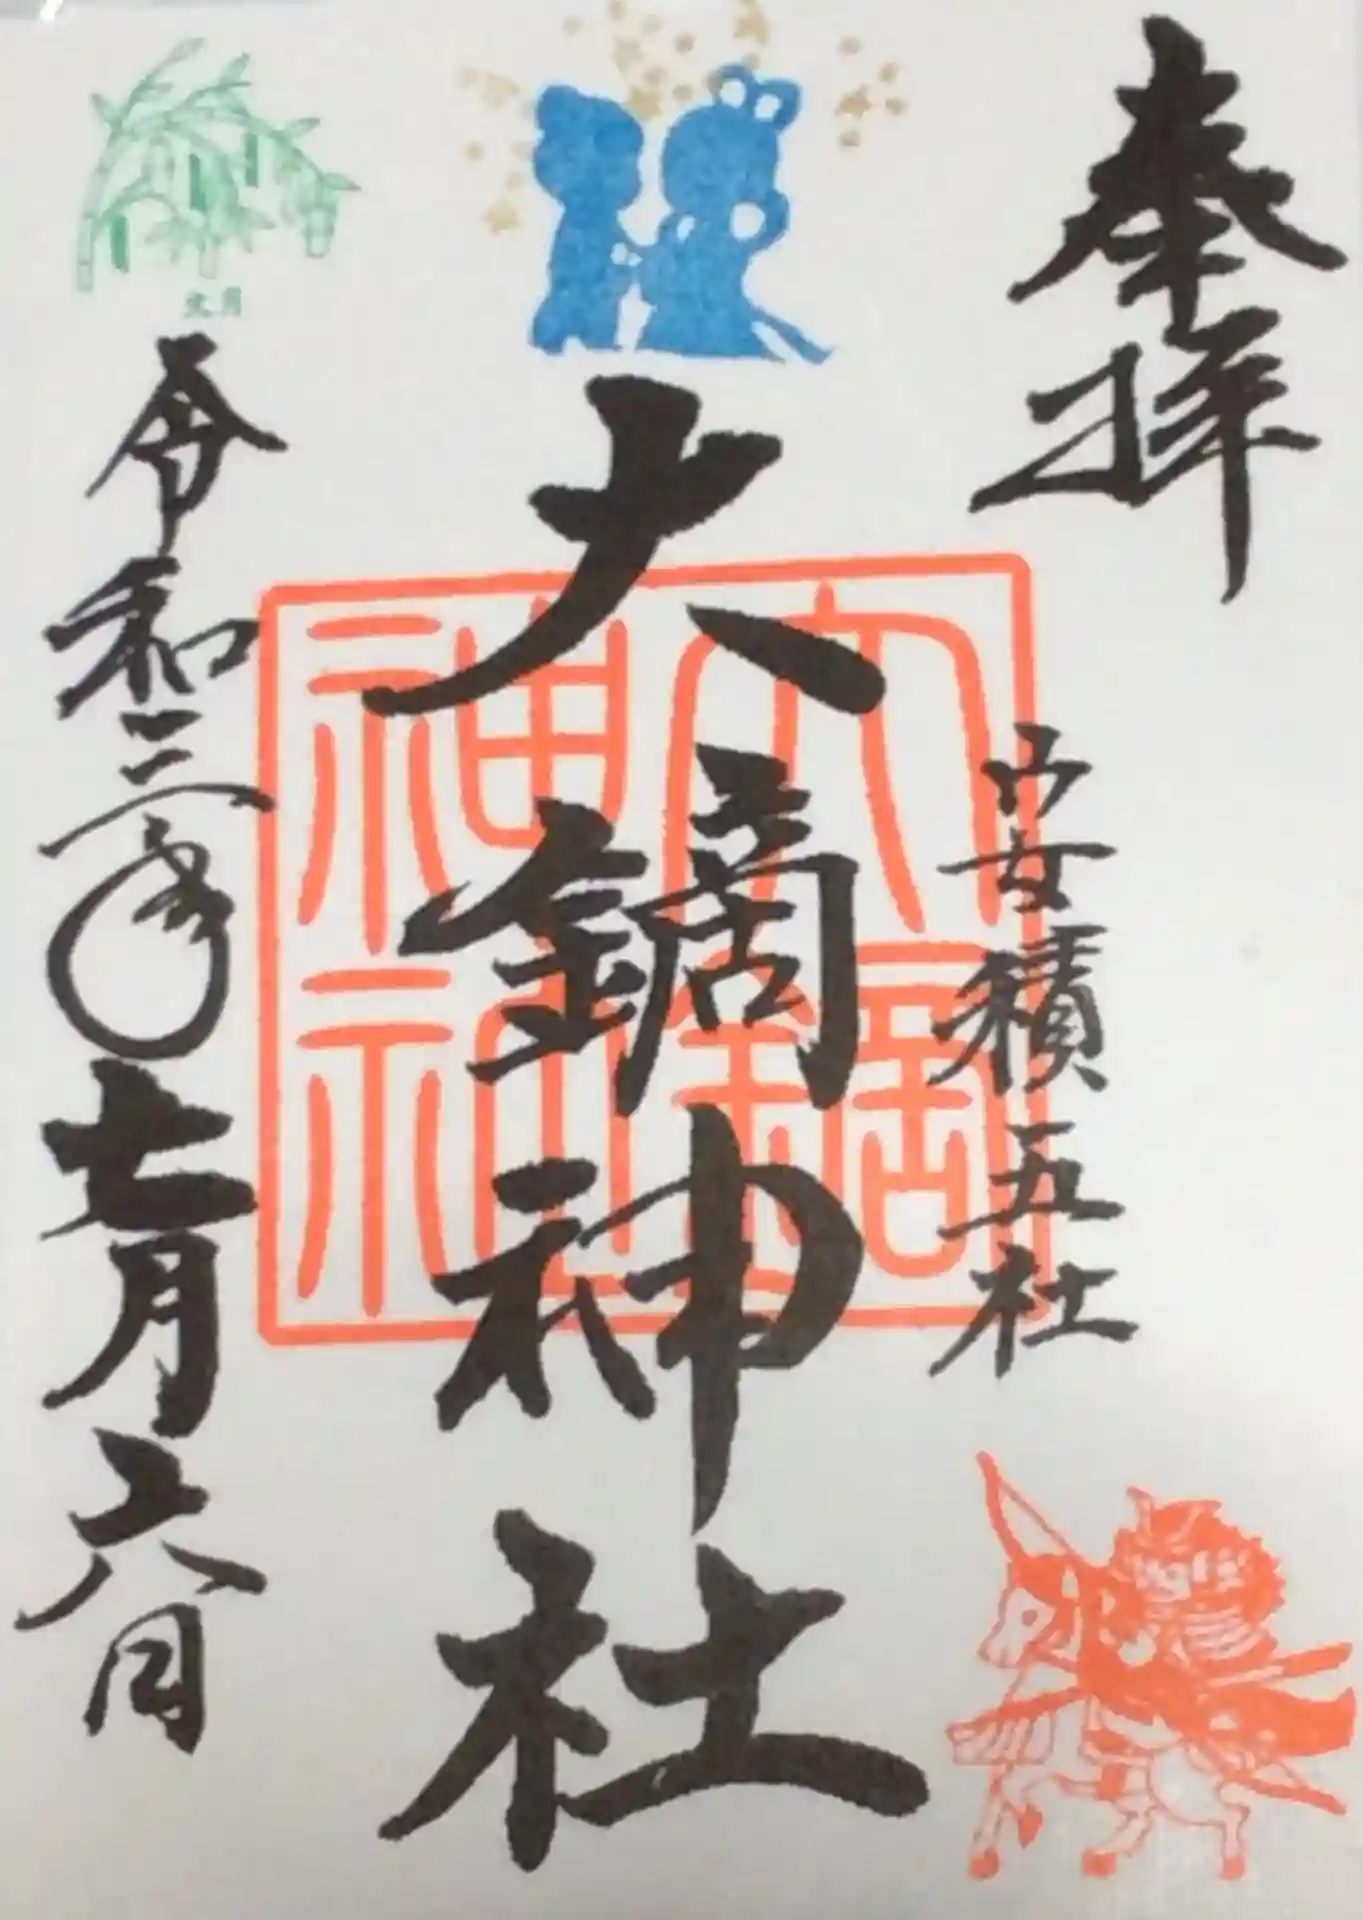 奉拝
安積五社
大鏑神社
大鏑神社
令和三年七月六日
文月